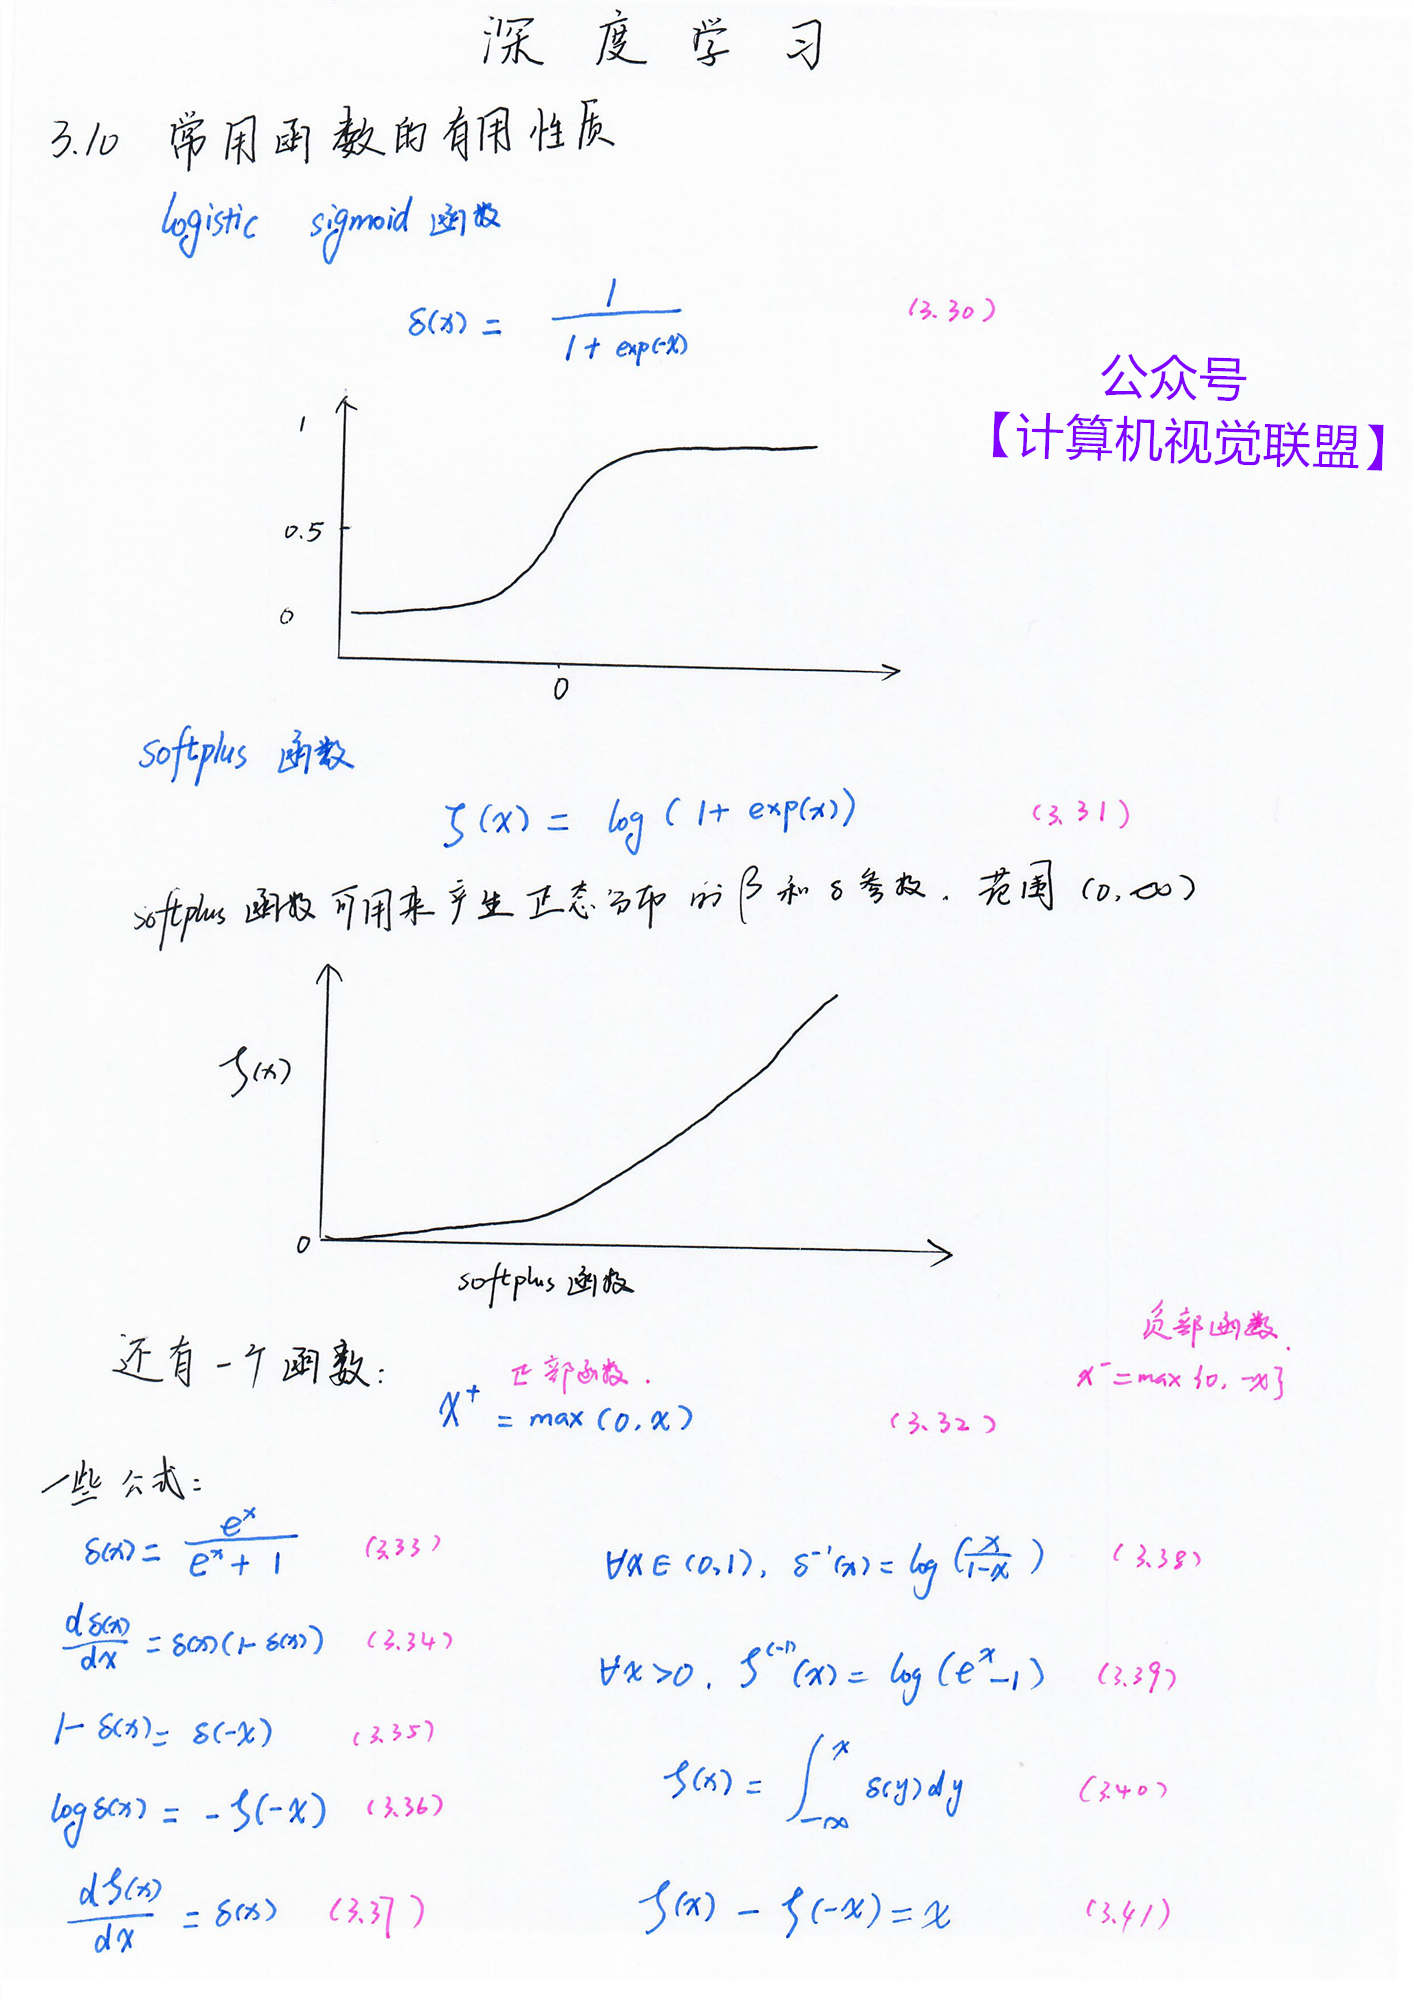 深度学习
3.10 常用函数的有用性质
logistic sigmoid 函数
δ(x) = 1 / (1 + exp(-x)) (3.30)
公众号
【计算机视觉联盟】
1
0.5
0
0
softplus 函数
ζ(x) = log(1+ exp(x)) (3.31)
softplus 函数可用来产生正态分布的β和δ参数. 范围(0,∞)
ζ(x)
0
softplus 函数
还有一个函数:
正部函数.
x⁺ = max(0,x) (3.32)
负部函数.
x⁻ = max{0, -x}
一些公式:
δ(x) = eˣ / (eˣ + 1) (3.33)
dδ(x)/dx = δ(x)(1-δ(x)) (3.34)
1-δ(x) = δ(-x) (3.35)
logδ(x) = -ζ(-x) (3.36)
dζ(x)/dx = δ(x) (3.37)
∀x∈(0,1), δ⁻¹(x) = log(x/(1-x)) (3.38)
∀x>0, ζ⁽⁻¹⁾(x) = log(eˣ-1) (3.39)
ζ(x) = ∫_{-∞}^{x} δ(y)dy (3.40)
ζ(x) - ζ(-x) = x (3.41)